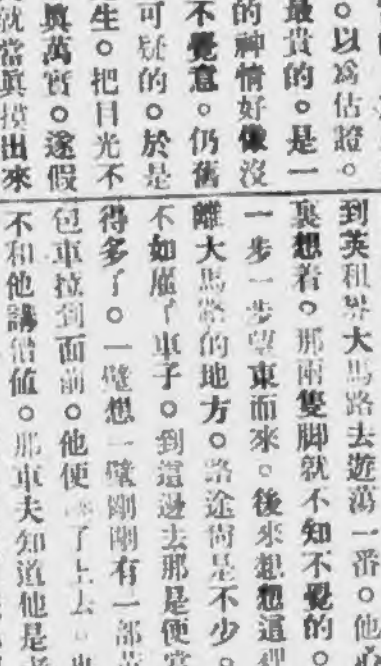 。以爲估證。
最貴的。是一
的神情好像沒
不覺意。仍舊
可疑的。於是
生。把目光不
眞萬實。遂假
就當眞摸出來
到英租界大馬路去遊蕩一番。他
裏想着。那兩隻脚就不知不覺的。
一步一步望東而來。後來想想這
離大馬路的地方。路途尙是不少。
不如雇了車子。到這邊去那是便
得多了。一壁想一壁剛剛有一部
包車拉到面前。他便了上去。
不和他講價值。那車夫知道他是